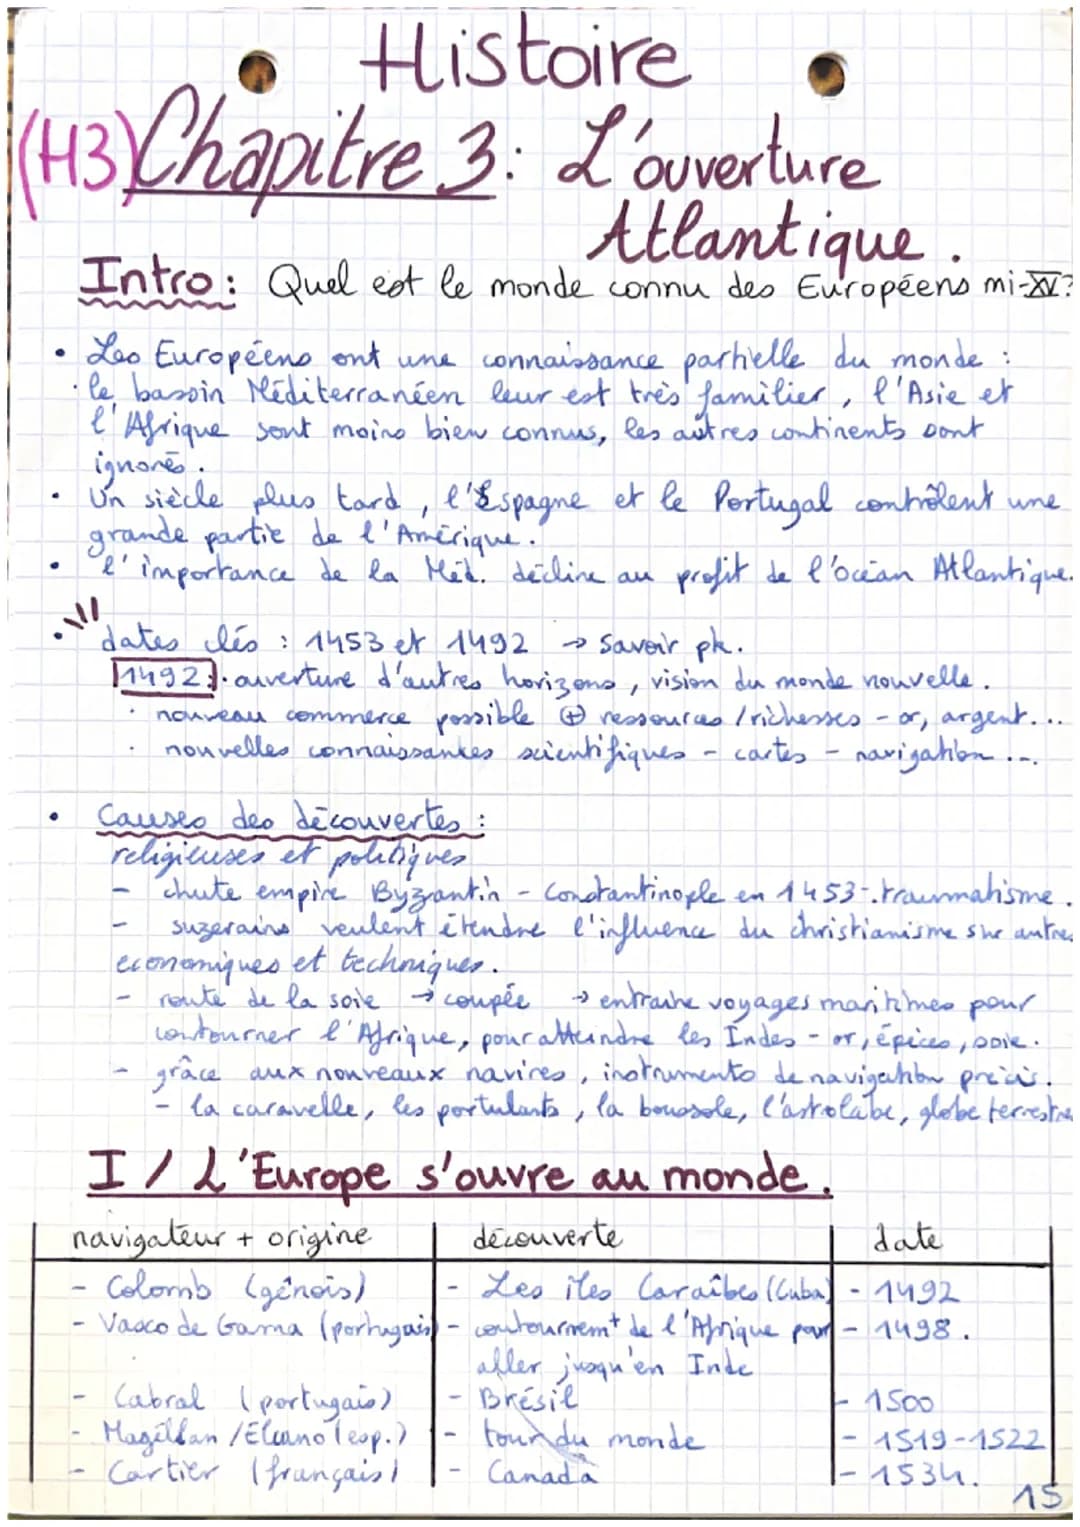 Histoire
(H3) Chapitre 3: L'ouverture
Atlantique.
Intro: Quel est le monde connu des Européens mi-XV?
• Les Européens ont une connaissance partielle du monde :
· le bassin Méditerranéen leur est très familier, l'Asie et
l'Afrique sont moins bien connus, les autres continents sont
ignorés.
• Un siècle plus tard, l'Espagne et le Portugal contrôlent une
grande partie de l'Amérique.
• l'importance de la Méd. décline au profit de l'océan Atlantique.
• dates clés : 1453 et 1492 → savoir pk.
1492: · ouverture d'autres horizons, vision du monde nouvelle.
· nouveau commerce possible ⊕ ressources / richesses - or, argent...
· nouvelles connaissances scientifiques - cartes - navigation...
• Causes des découvertes :
religieuses et politiques
- chute empire Byzantin - Constantinople en 1453-.traumatisme.
- suzerains veulent étendre l'influence du christianisme sur autres
economiques et techniques.
- route de la soie → coupée → entraine voyages maritimes pour
contourner l'Afrique, pour atteindre les Indes - or, épices, soie.
- grâce aux nouveaux navires, instruments de navigation précis.
- la caravelle, les portulants, la boussole, l'astrolabe, globe terrestre
I / L'Europe s'ouvre au monde.
navigateur + origine découverte date
- Colomb (génois) - Les îles Caraïbes (Cuba) - 1492
- Vasco de Gama (portugais) - contournemt de l'Afrique pour - 1498.
aller jusqu'en Inde
- Cabral (portugais) - Brésil - 1500
- Magellan / Elcano (esp.) - tour du monde - 1519-1522
- Cartier (français) - Canada - 1534.
15